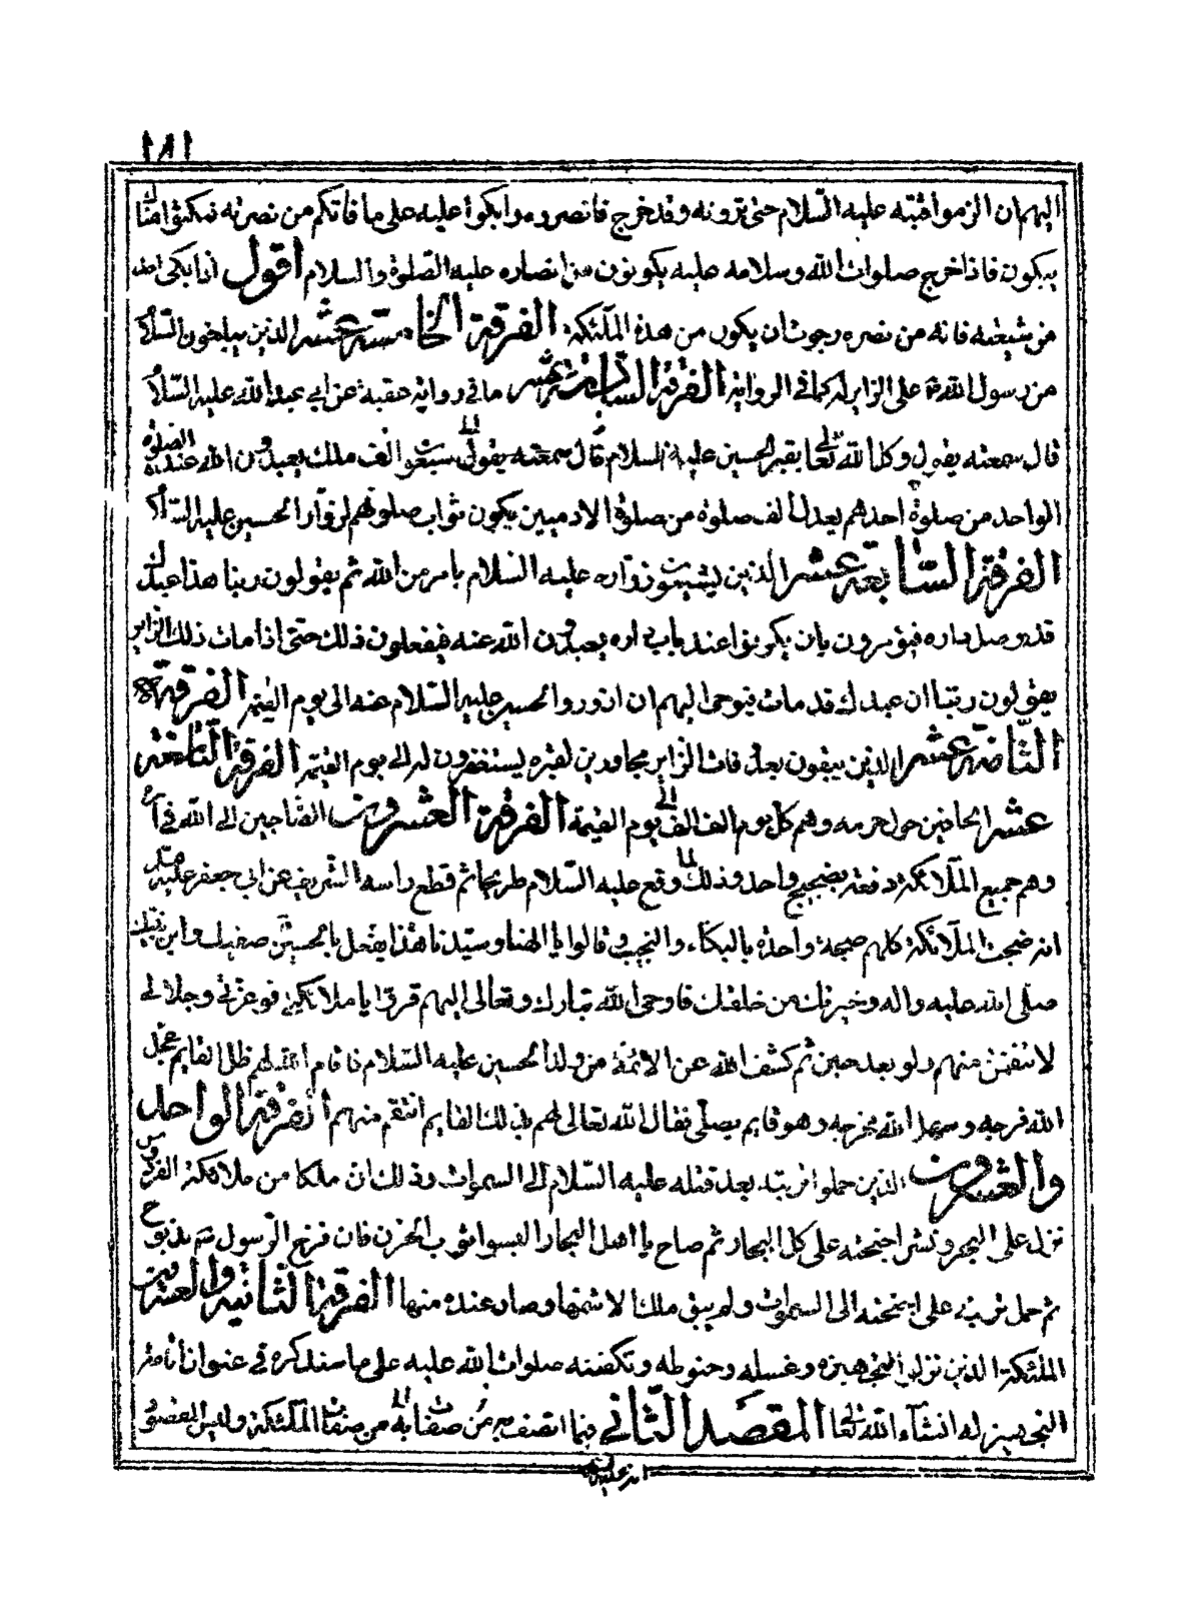 ١٨١
اليهم ان الزموا قبته عليه السلام حتى ترونه وقد خرج فانصروه وابكوا عليه على ما فاتكم من نصرته فمكثوا هناك
يبكون فاذا خرج صلوات الله وسلامه عليه يكونون من انصاره عليه الصلوة والسلام اقول اذا بكى احد
من شيعته فانه من نصره رجوت ان يكون من هذه الملئكة الفرقة الخامسة عشر الذين يبلغون السلام
من رسول الله ص على الزاير له كما في الرواية الفرقة السادسة عشر ما في رواية عقبة عن ابي عبد الله عليه السلام
قال سمعته يقول وكل الله تعالى بقبر الحسين عليه السلام قال سمعته يقول سبعون الف ملك يعبدون الله عنده الصلوة
الواحد من صلوة احدهم يعدل الف صلوة من صلوة الادميين يكون ثواب صلوتهم لزوار الحسين عليه السلام
الفرقة السابعة عشر الذين يشيعون زواره عليه السلام بامر من الله ثم يقولون ربنا هذا عبدك
قد وصل داره فيؤمرون بان يكونوا عند باب داره يعبدون الله عنه فيفعلون ذلك حتى اذا مات ذلك الزاير
يقولون ربنا ان عبدك قد مات فيوحى اليهم ان ازوروا الحسين عليه السلام عنه الى يوم القيمة الفرقة
الثامنة عشر الذين يبقون بعد وفات الزاير مجاورين لقبره يستغفرون له الى يوم القيمة الفرقة التاسعة
عشر الحافين حول حرمه وهم كل يوم الف الف الى يوم القيمة الفرقة العشرون الضاجين الى الله في
وهم جميع الملائكة دفعة بضجيج واحد وذلك لما وقع عليه السلام طريحا ثم قطع راسه الشريف عن ابي جعفر عليه السلام
انه ضجت الملائكة كلهم صيحة واحدة بالبكاء والنحيب وقالوا يا الهنا وسيدنا هذا يفعل بالحسين صفيك وابن نبيك
صلى الله عليه واله وخيرتك من خلقك فاوحى الله تبارك وتعالى اليهم قروا يا ملائكتي فوعزتي وجلالي
لانتقمن منهم ولو بعد حين ثم كشف الله عن الائمة من ولد الحسين عليه السلام فاقام الله لهم ظل القايم عجل
الله فرجه وسهل الله مخرجه وهو قايم يصلي فقال الله تعالى لهم بذلك القايم انتقم منهم الفرقة الواحد
والعشرون الذين حملوا تربته بعد قتله عليه السلام الى السموات وذلك ان ملكا من ملائكة الفردوس
نزل على البحر ونشر اجنحته على كل البحار ثم صاح يا اهل البحار البسوا ثوب الحزن فان فرخ الرسول ص مذبوح
ثم حمل تربته على اجنحته الى السموات ولم يبق ملك الا شمها وصار عنده منها الفرقة الثانية والعشرون
الملئكة الذين نزلوا لتجهيزه وغسله وحنوطه وتكفينه صلوات الله عليه على ما سنذكره في عنوان اقامة
التجهيز له انشاء الله تعالى المقصد الثاني فيما اتصف به من صفات الملئكة وليس المقصود
انه عليه السلام